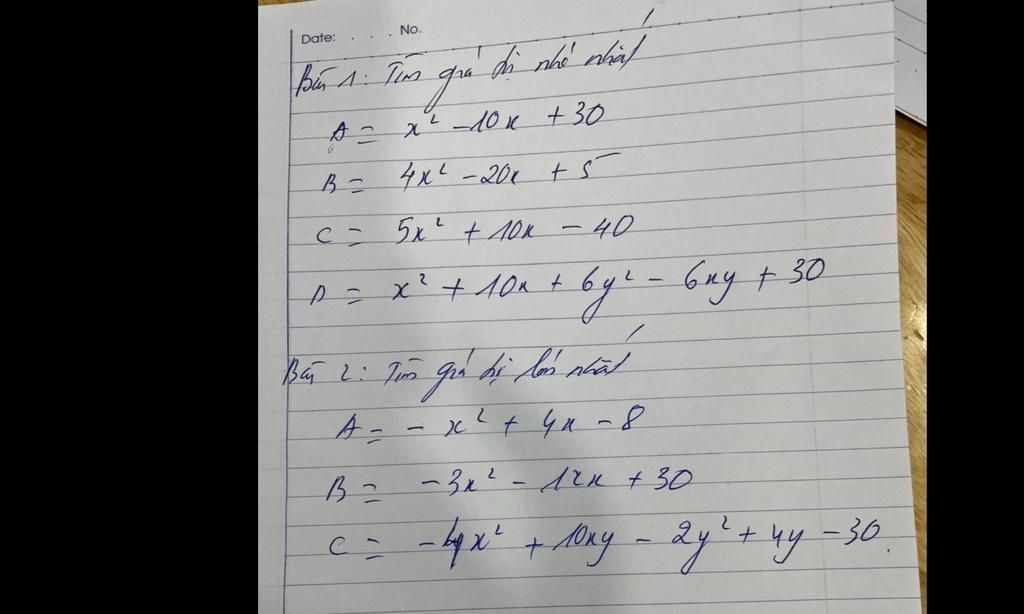 Date: . . . . No.
Bài 1: Tìm giá trị nhỏ nhất
A = x² - 10x + 30
B = 4x² - 20x + 5
C = 5x² + 10x - 40
D = x² + 10x + 6y² - 6xy + 30
Bài 2: Tìm giá trị lớn nhất
A = - x² + 4x - 8
B = -3x² - 12x + 30
C = x² + 10xy - 2y² + 4y - 30